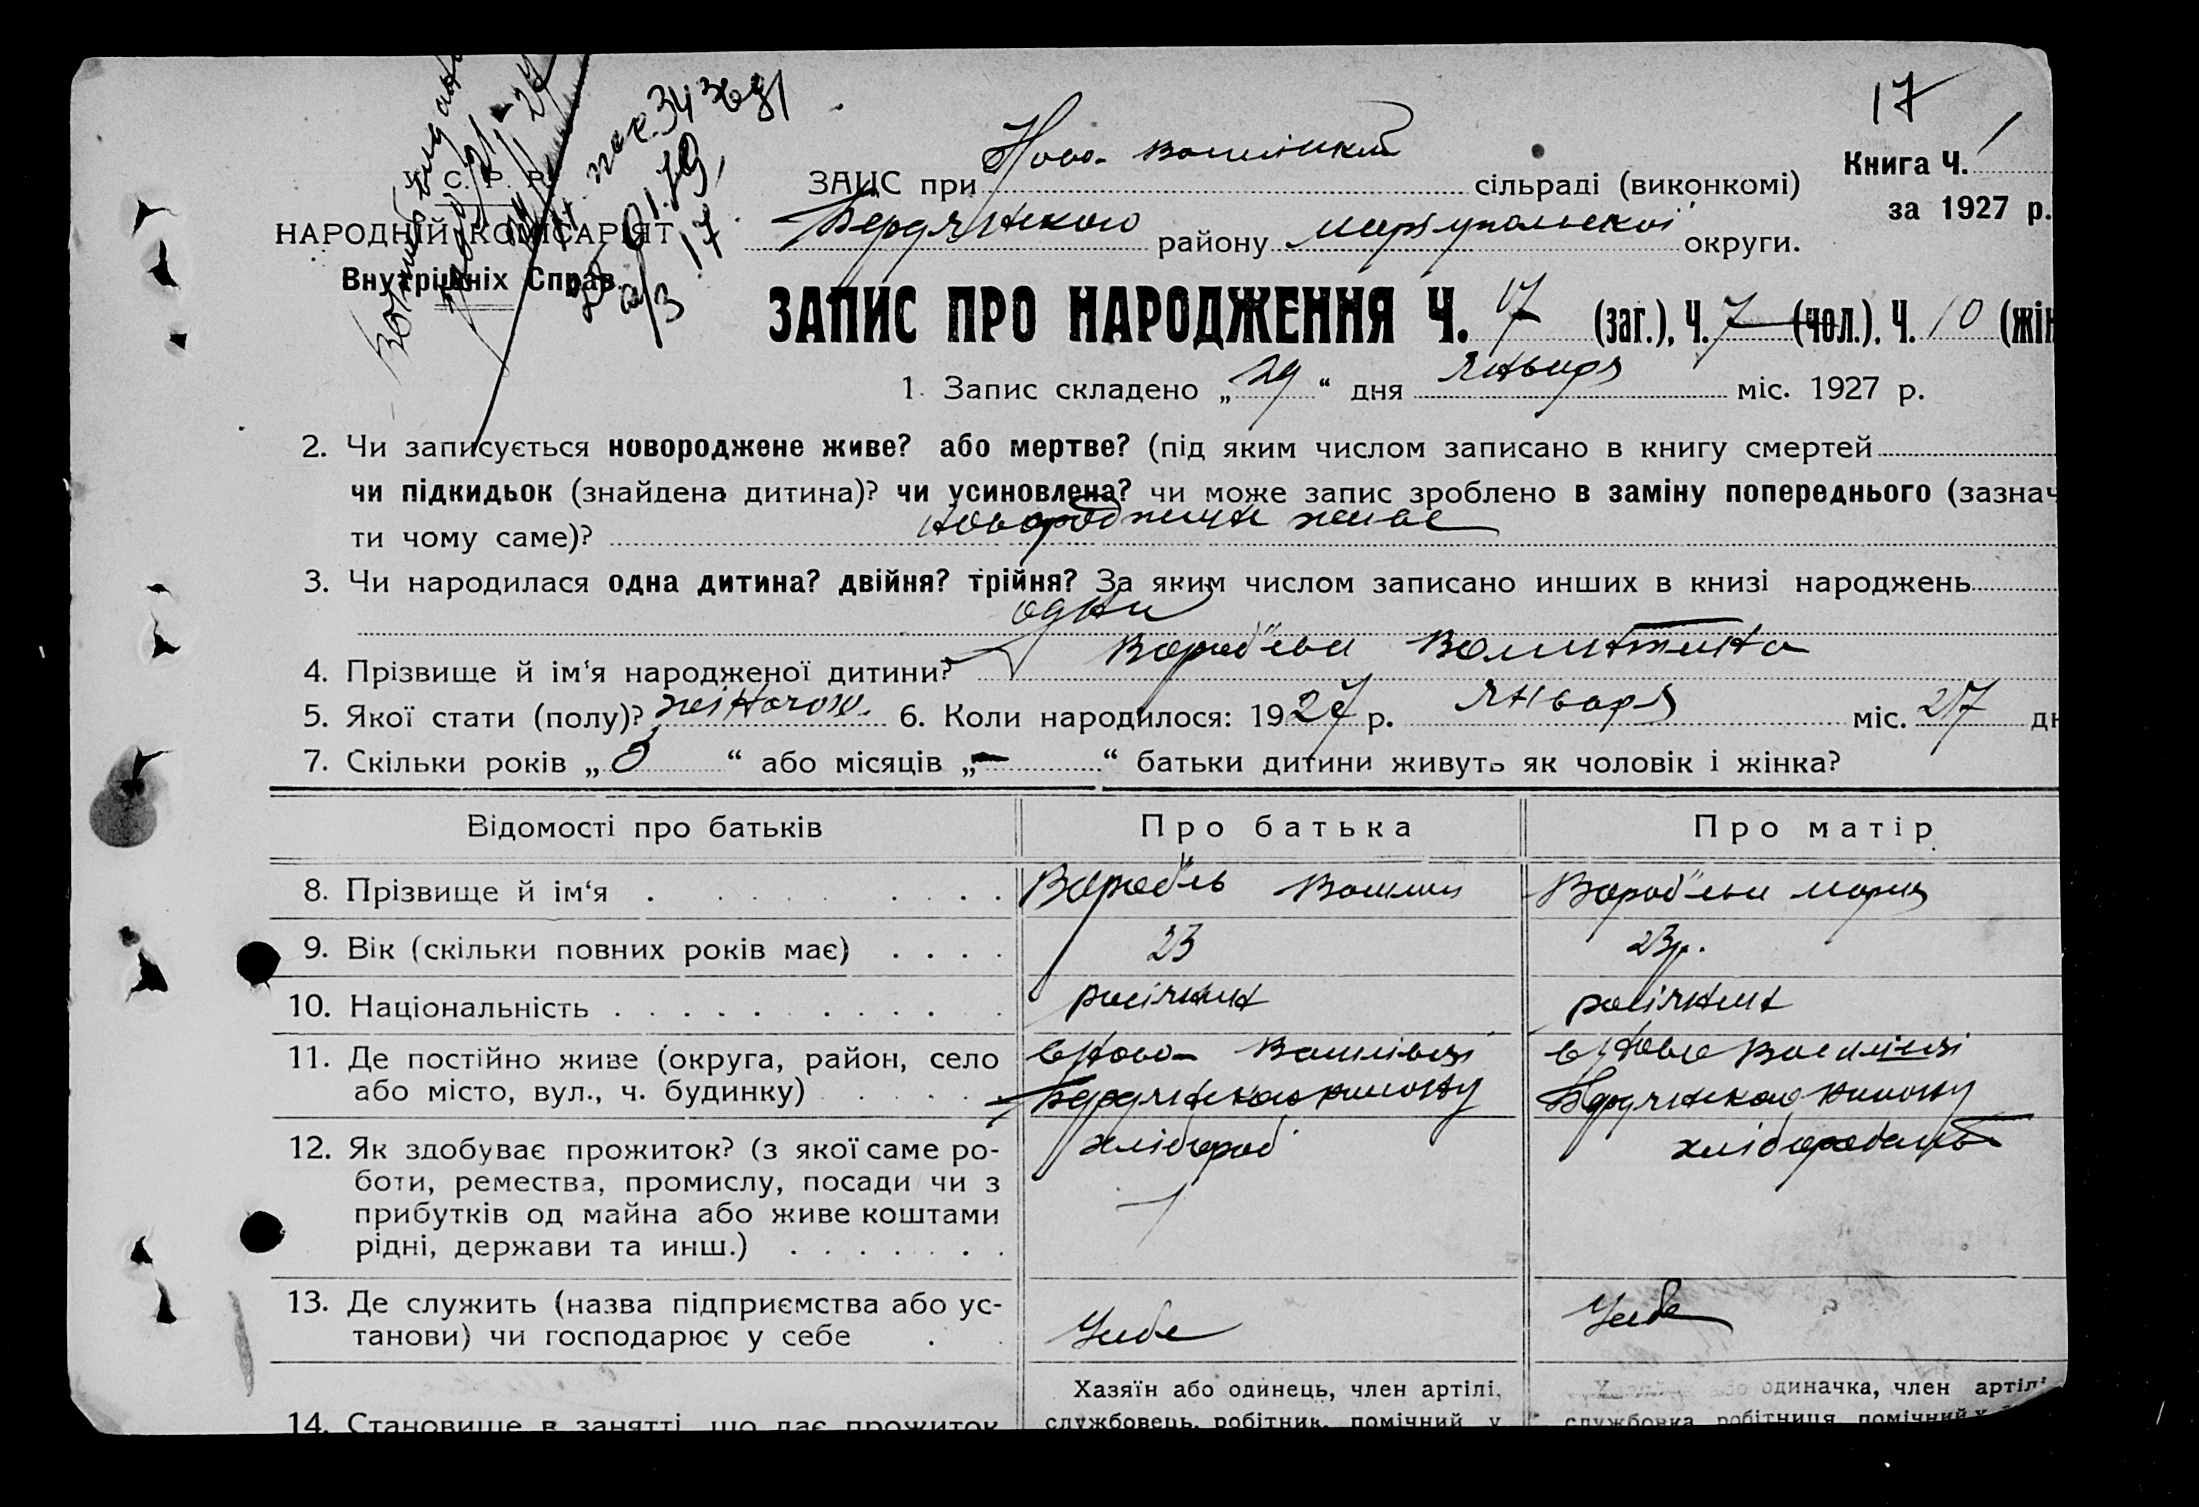 17
Книга Ч. 1
за 1927 р.
У. С. Р. Р.
НАРОДНІЙ КОМІСАРІЯТ
Внутрішніх Справ.
ЗАПИС при Ново-Васильївській сільраді (виконкомі)
Бердянського району Маріупольскої округи.
ЗАПИС ПРО НАРОДЖЕННЯ Ч. 17 (заг.), Ч. 7 (чол.). Ч. 10 (жін
1. Запис складено „29“ дня Января міс. 1927 р.
2. Чи записується новороджене живе? або мертве? (під яким числом записано в книгу смертей
чи підкидьок (знайдена дитина)? чи усиновлена? чи може запис зроблено в заміну попереднього (зазнач
ти чому саме)? новороджене живе
3. Чи народилася одна дитина? двійня? трійня? За яким числом записано инших в книзі народжень
одна
4. Прізвище й ім‘я народженої дитини? Вороб"ева Валинтина
5. Якої стати (полу)? жіночою. 6. Коли народилося: 1927 р. Января міс. 27 дн
7. Скільки років „0“ або місяців „-“ батьки дитини живуть як чоловік і жінка?
Відомості про батьків Про батька Про матір
8. Прізвище й ім‘я Вороб"ев Вороб"ева Мария
9. Вік (скільки повних років має) 23 23р.
10. Національність росіянин росіянин
11. Де постійно живе (округа, район, село в Ново-Василівці в Ново Василівці
або місто, вул., ч. будинку) Бердянського району Бердянського району
12. Як здобуває прожиток? (з якої саме ро- хлібороб
боти, ремества, промислу, посади чи з
прибутків од майна або живе коштами
рідні, держави та инш.)
13. Де служить (назва підприємства або ус-
танови) чи господарює у себе Усебе Усебе
Хазяїн або одинець, член артілі, або одиначка, член артілі
14. Становище в занятті, що дає прожиток службовець, робітник, помічний у службовка робітниця помічний